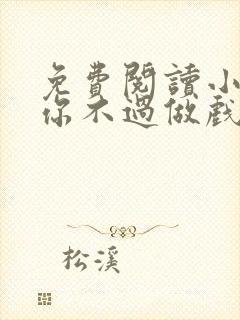 免費閱讀小
你不過做戲
松溪